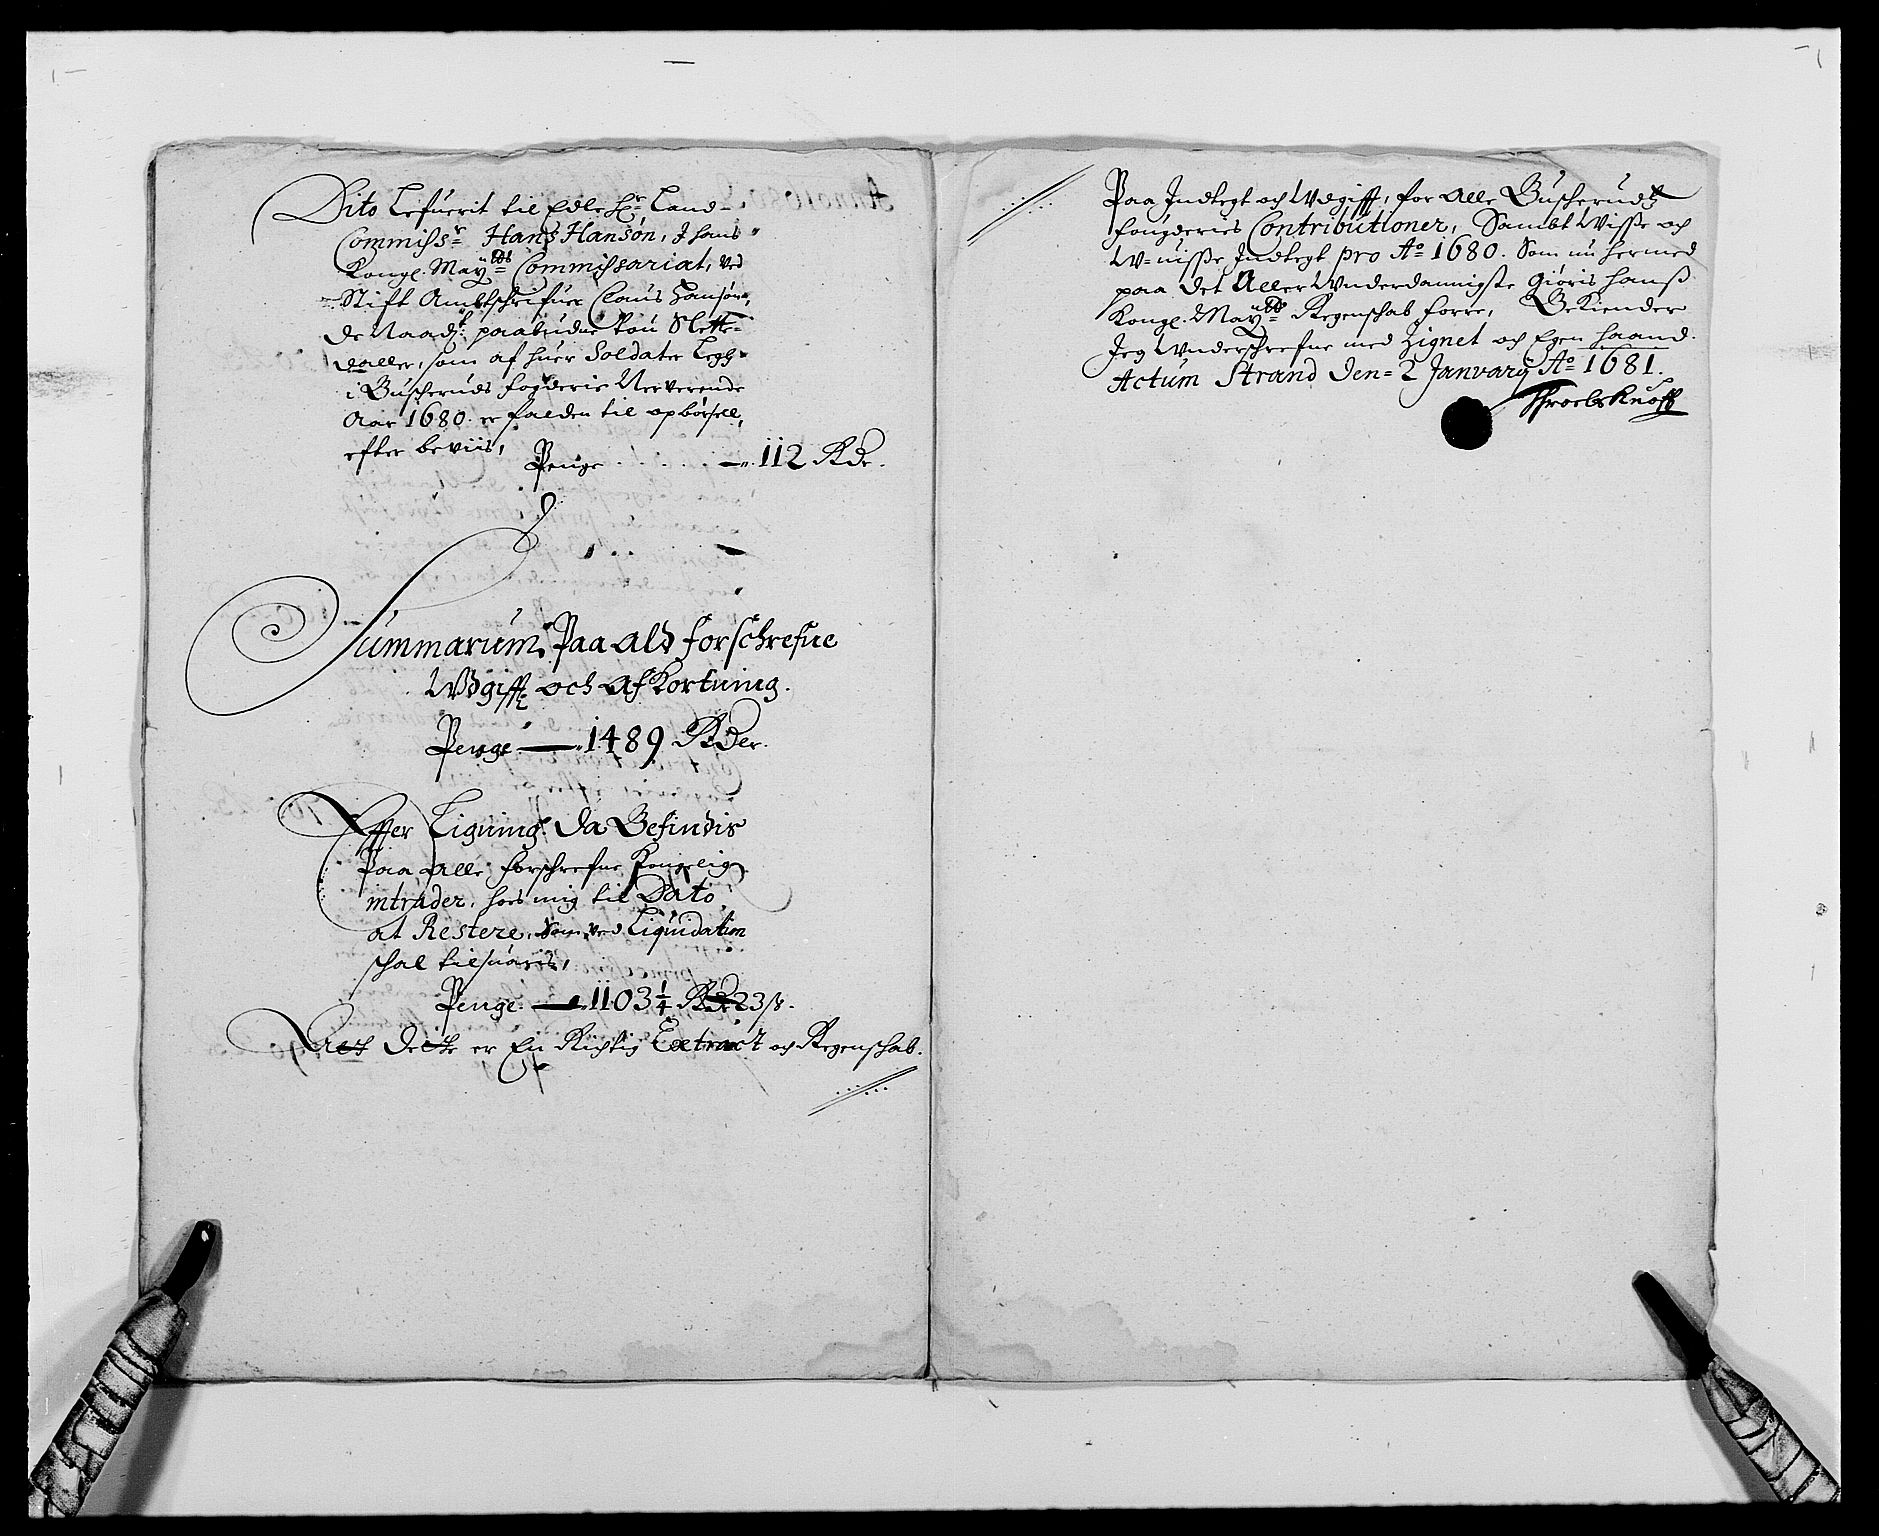 Dito Lefuerit til Edle Hr Land-
Commissr Hans Hanson, J hans
Kongl. Mayts Commissariat, ved
Stift Ambtschrifuer Claus Hansøn,
de Naadst paabudne tou Slette-
daller, som af huer Soldater Legh
i Buscheruds fogderie Nerverende
Aar 1680 er falden til opbørsell,
efter beviis,
Penge 112 Rdr.
Summarum Paa ald forschrefne
Wdgifft och afkortning.
Penge — 1489 Rder.
Effter Ligning, da Befindis
Paa alle forschrefne Kongelig
intrader, hos mig til Dato,
at Restere, Som ved Liquidation
schal tilsuaris,
Penge — 1103 1/4 Rdr 23 s.
Att dette er En Richtig Extract och Regenschab.
Paa Indtegt och Wdgifft, for alle Buscherudtz
fougderies Contributioner, Sambt Wisse och
W-uisse Indtegt pro Ao 1680. Som nu hermed
paa det Aller Wnderdannigste Giøris hans
Kongl. Mayts Regenschab forre, Bekiender
Jeg Wnderschrefne med Zignet och Egen haand.
Actum Strand den 2 January Ao 1681.
Throels Knoff